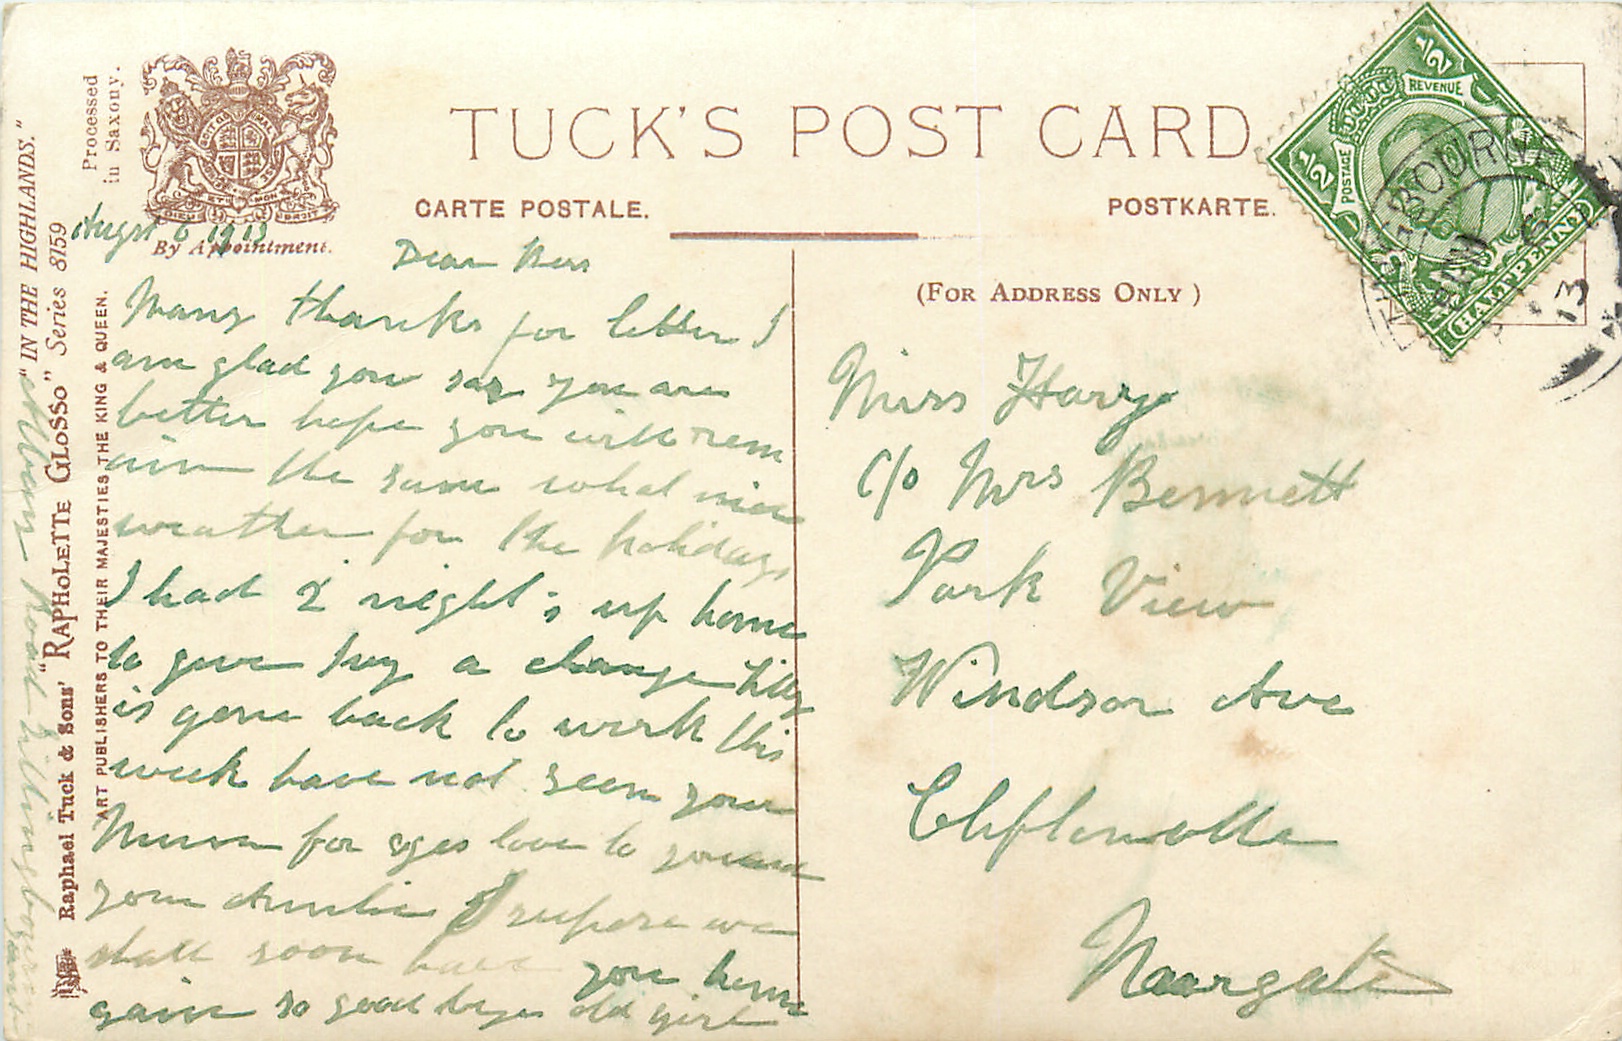 TUCK'S POST CARD
CARTE POSTALE.
POSTKARTE.
(FOR ADDRESS ONLY)
Processed
in Saxony.
By Appointment.
"IN THE HIGHLANDS."
Raphael Tuck & Sons' "RAPHOLETTE GLOSSO" Series 8159
ART PUBLISHERS TO THEIR MAJESTIES THE KING & QUEEN.
Albany Road Sittingbourne
August 6 1913
Dear
Many thanks for letter I
am glad you say you are
better hope you will rem
ain the same what nice
weather for the holidays
I had 2 night's up home
to give a change Lilly
is gone back to work this
week have not seen your
Mum for ages love to you and
your Auntie I supose we
shall soon have you home
gain so good bye old girl
Miss
c/o Mrs Bennett
Park View
Windsor Ave
Cliftonville
Margate
1/2
REVENUE
1/2
POSTAGE
HALFPENNY
BOURNE
13